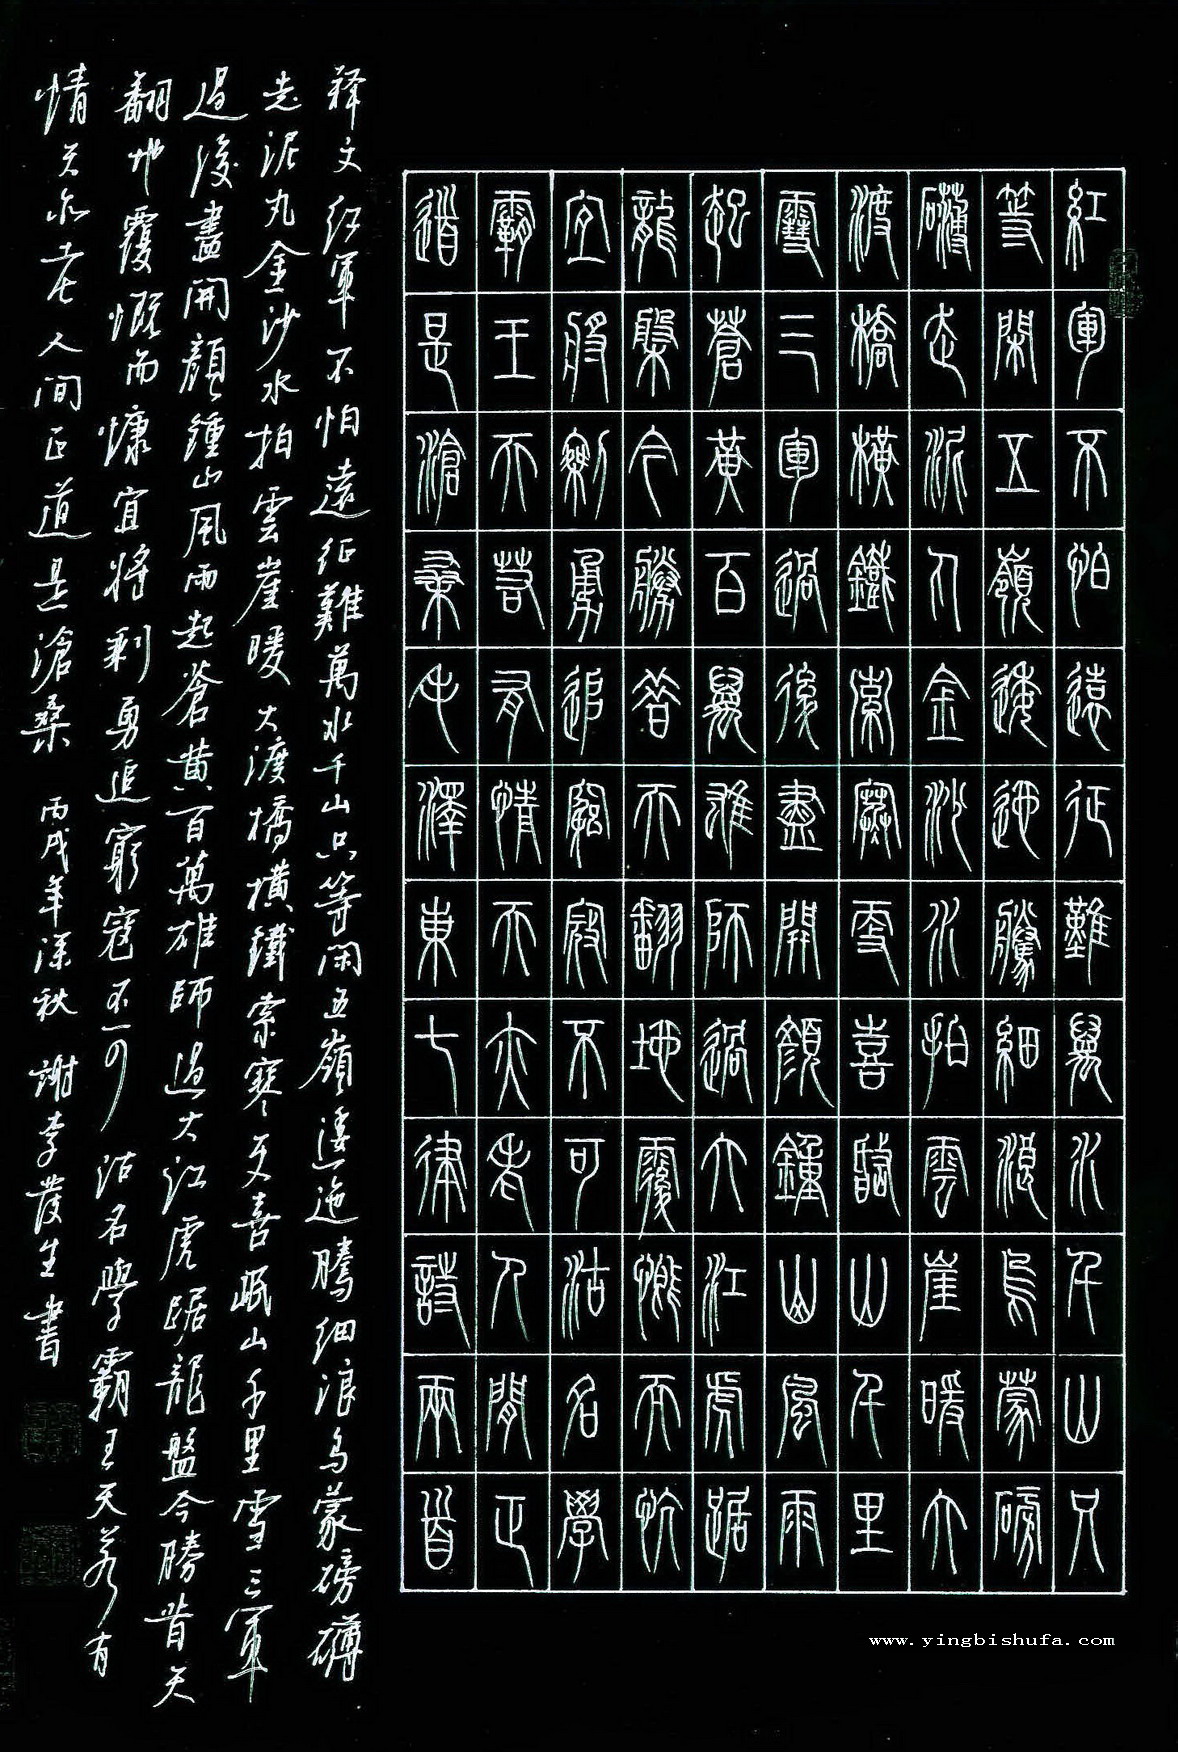 紅軍不怕遠征難萬水千山只
等閑五嶺逶迤騰細浪烏蒙磅
礴走泥丸金沙水拍雲崖暖大
渡橋橫鐵索寒更喜岷山千里
雪三軍過後盡開顏鐘山風雨
起蒼黃百萬雄師過大江虎踞
龍槃今勝昔天翻地覆慨而慷
宜將剩勇追窮寇不可沽名學
霸王天若有情天亦老人間正
道是滄桑毛澤東七律詩兩首
释文红軍不怕遠征難萬水千山只等闲五嶺逶迤騰细浪乌蒙磅礴
走泥丸金沙水拍雲崖暖大渡橋横鐵索寒更喜岷山千里雪三軍
過後盡開顏鍾山風雨起蒼黄百萬雄師過大江虎踞龍盤今勝昔天
翻地覆慨而慷宜将剩勇追窮寇不可沽名學霸王天若有
情天亦老人间正道是滄桑 丙戌年深秋 謝李發生書
www.yingbishufa.com